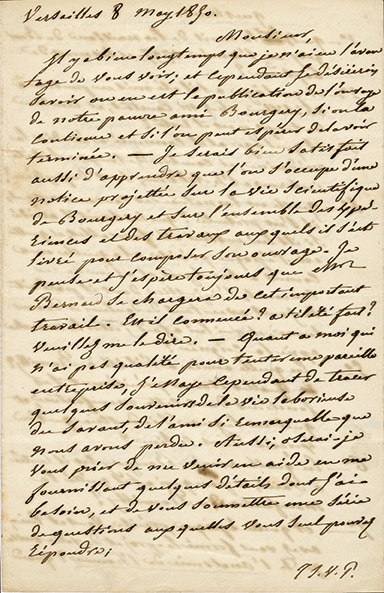 Versailles 8 May 1850.
Monsieur,
Il y a bien longtemps que je n'ai eu l'avan
tage de vous voir; et cependant je désirerais
savoir où en est la publication de l'ouvrage
de notre pauvre ami Bourgery, si on la
continue et si l'on peut espérer de la voir
terminée. — Je serais bien satisfait
aussi d'apprendre que l'on s'occupe d'une
notice projettée sur la vie scientifique
de Bourgery et sur l'ensemble des expé
riences et des travaux auxquels il s'est
livré pour composer son ouvrage. Je
pense et j'espère toujours que
Bernard se chargera de cet important
travail. Est il commencé? a t il été fait?
Veuillez me le dire. — Quant à moi qui
n'ai pas qualité pour tenter une pareille
entreprise, j'essaye cependant de tracer
quelques souvenirs de la vie laborieuse
du savant, de l'ami si remarquable que
nous avons perdu. Aussi, oserai-je
vous prier de me venir en aide en me
fournissant quelques détails dont j'ai
besoin, et de vous soumettre une série
de questions auxquelles vous seul pouvez
répondre;
T.S.V.P.